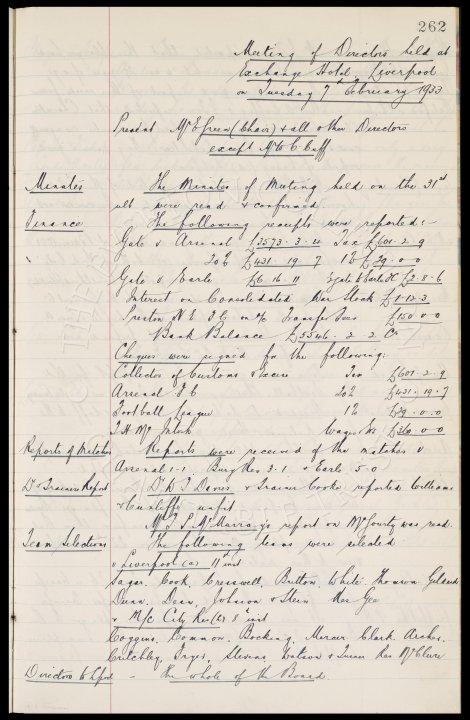 262
Meeting of Directors held at
Exchange Hotel, Liverpool
on Tuesday 7th February 1933
Present Mr E Green (Chair) & all other Directors
except Mr W C Cuff
Minutes The Minutes of Meeting held on the 31st
ult were read & confirmed
Finance The following receipts were reported:-
Gate v Arsenal £2573.3.4 Tax £601.2.9
20% £431.19.7 1% £29.0.0
Gate v Earle £6.16.11 £2.8.6
Interest on Consolidated Stock £1.12.3
Preston N E F C on a/c Transfer Fees £150.0.0
Bank Balance £5546.2.2 Cr
Cheques were signed for the following:
Collector of Customs & Excise Tax £601.2.9
Arsenal F C 20% £431.19.7
Football League 1% £29.0.0
T H McIntosh Wages &c £360.0.0
Reports of Matches Reports were received of the matches v
Arsenal 1-1, Bury Res 3-1 & Earle 5-0
Dr & Trainers Report Dr D J Davies & Trainer Cooke reported Williams
& Cunliffe unfit
Mr McMurray's report on McGourty was read.
Team Selections The following teams were selected
v Liverpool (a) 11th inst
Sagar, Cook, Cresswell, Britton, White, Thomson, Geldard
Dunn, Dean, Johnson & Stein Res Gee
v M/c City Res (h) inst
Coggins, Common, Bocking, Mercer, Clark, Archer,
Critchley, Stevens, Watson & Turner Res McClure
Directors to L'pool - The whole of the Board.